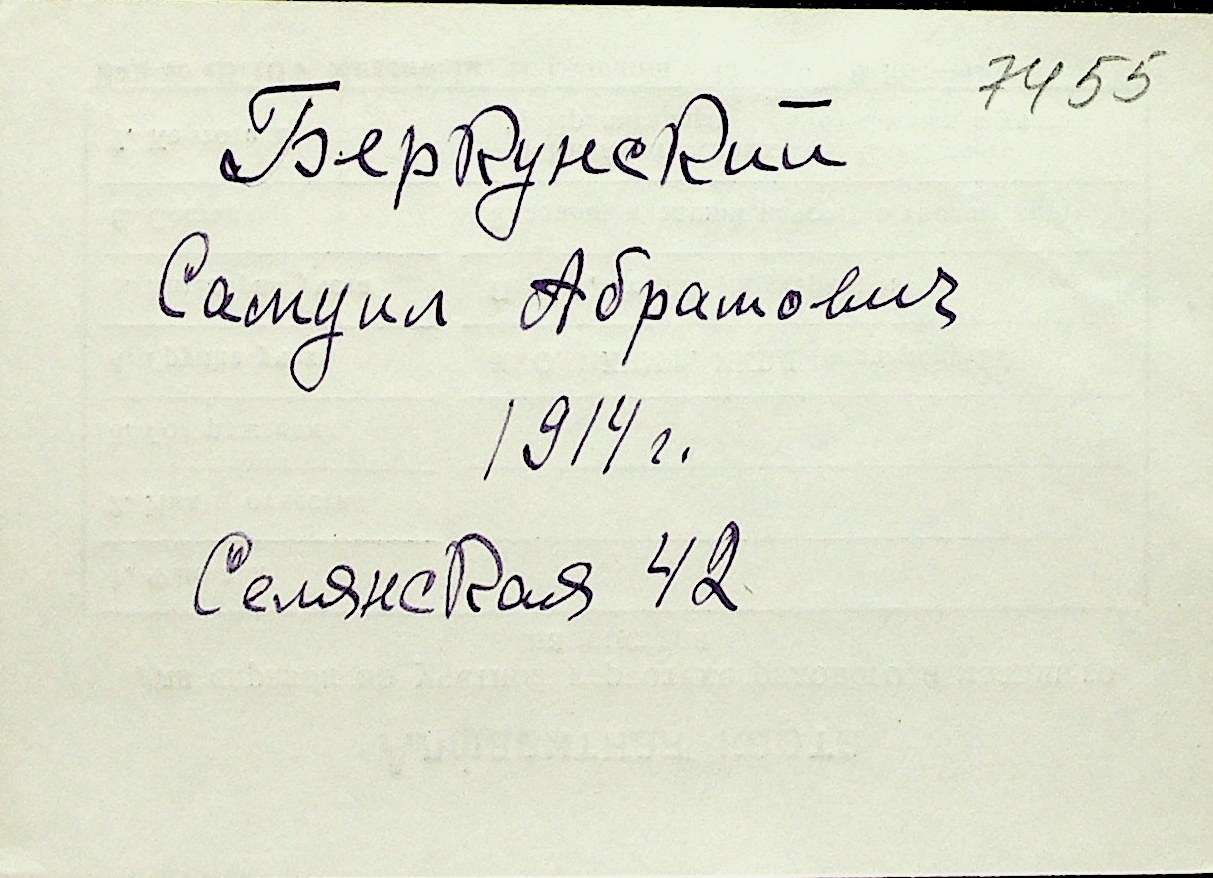 7455
Беркунский
Самуил Абрамович
1914 г.
Селянская 42